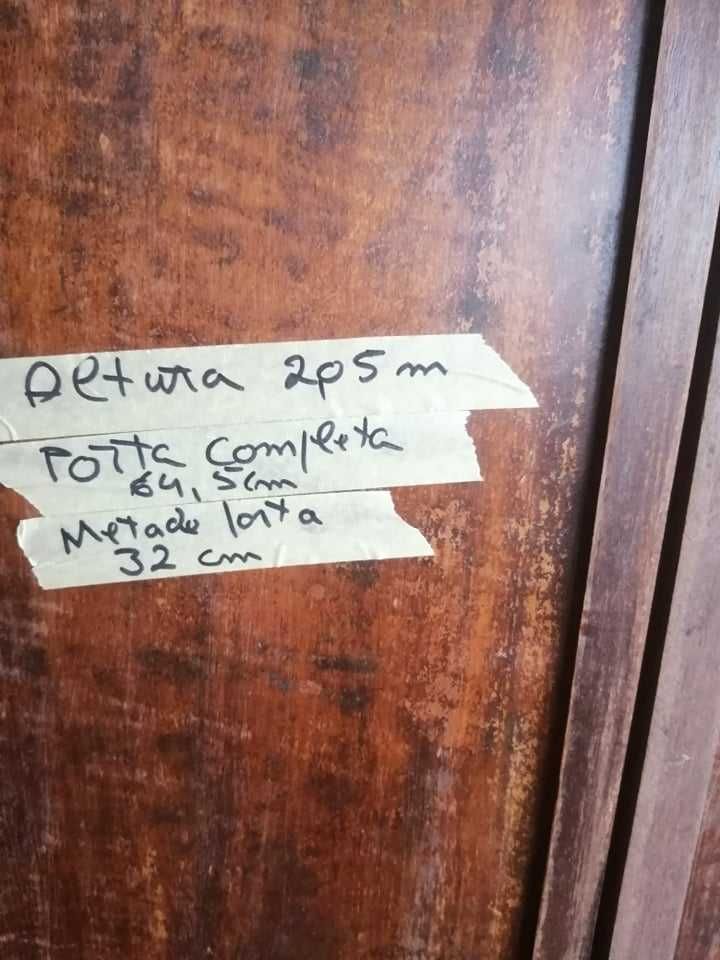 Altura 2,05m
Porta Completa
64,5cm
Metade Porta
32 cm